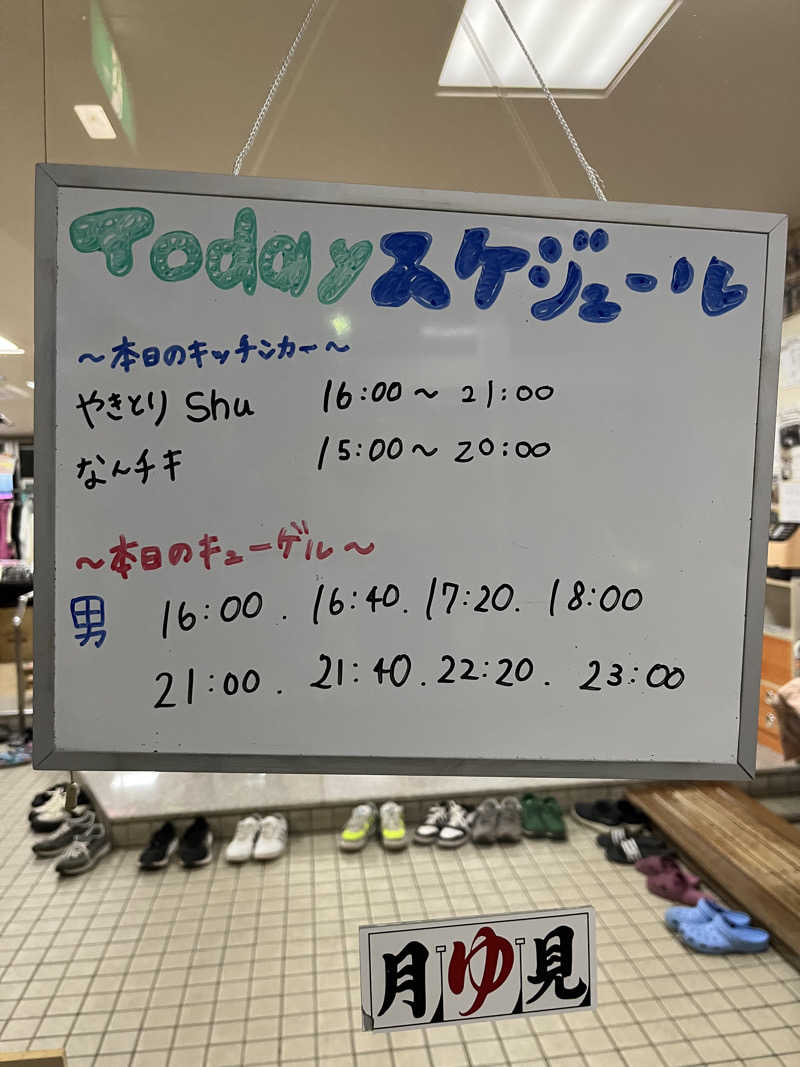 Todayスケジュール
～本日のキッチンカー～
やきとり Shu 16:00～21:00
なんチキ 15:00～20:00
～本日のキューゲル～
男 16:00. 16:40. 17:20. 18:00
21:00. 21:40. 22:20. 23:00
月ゆ見